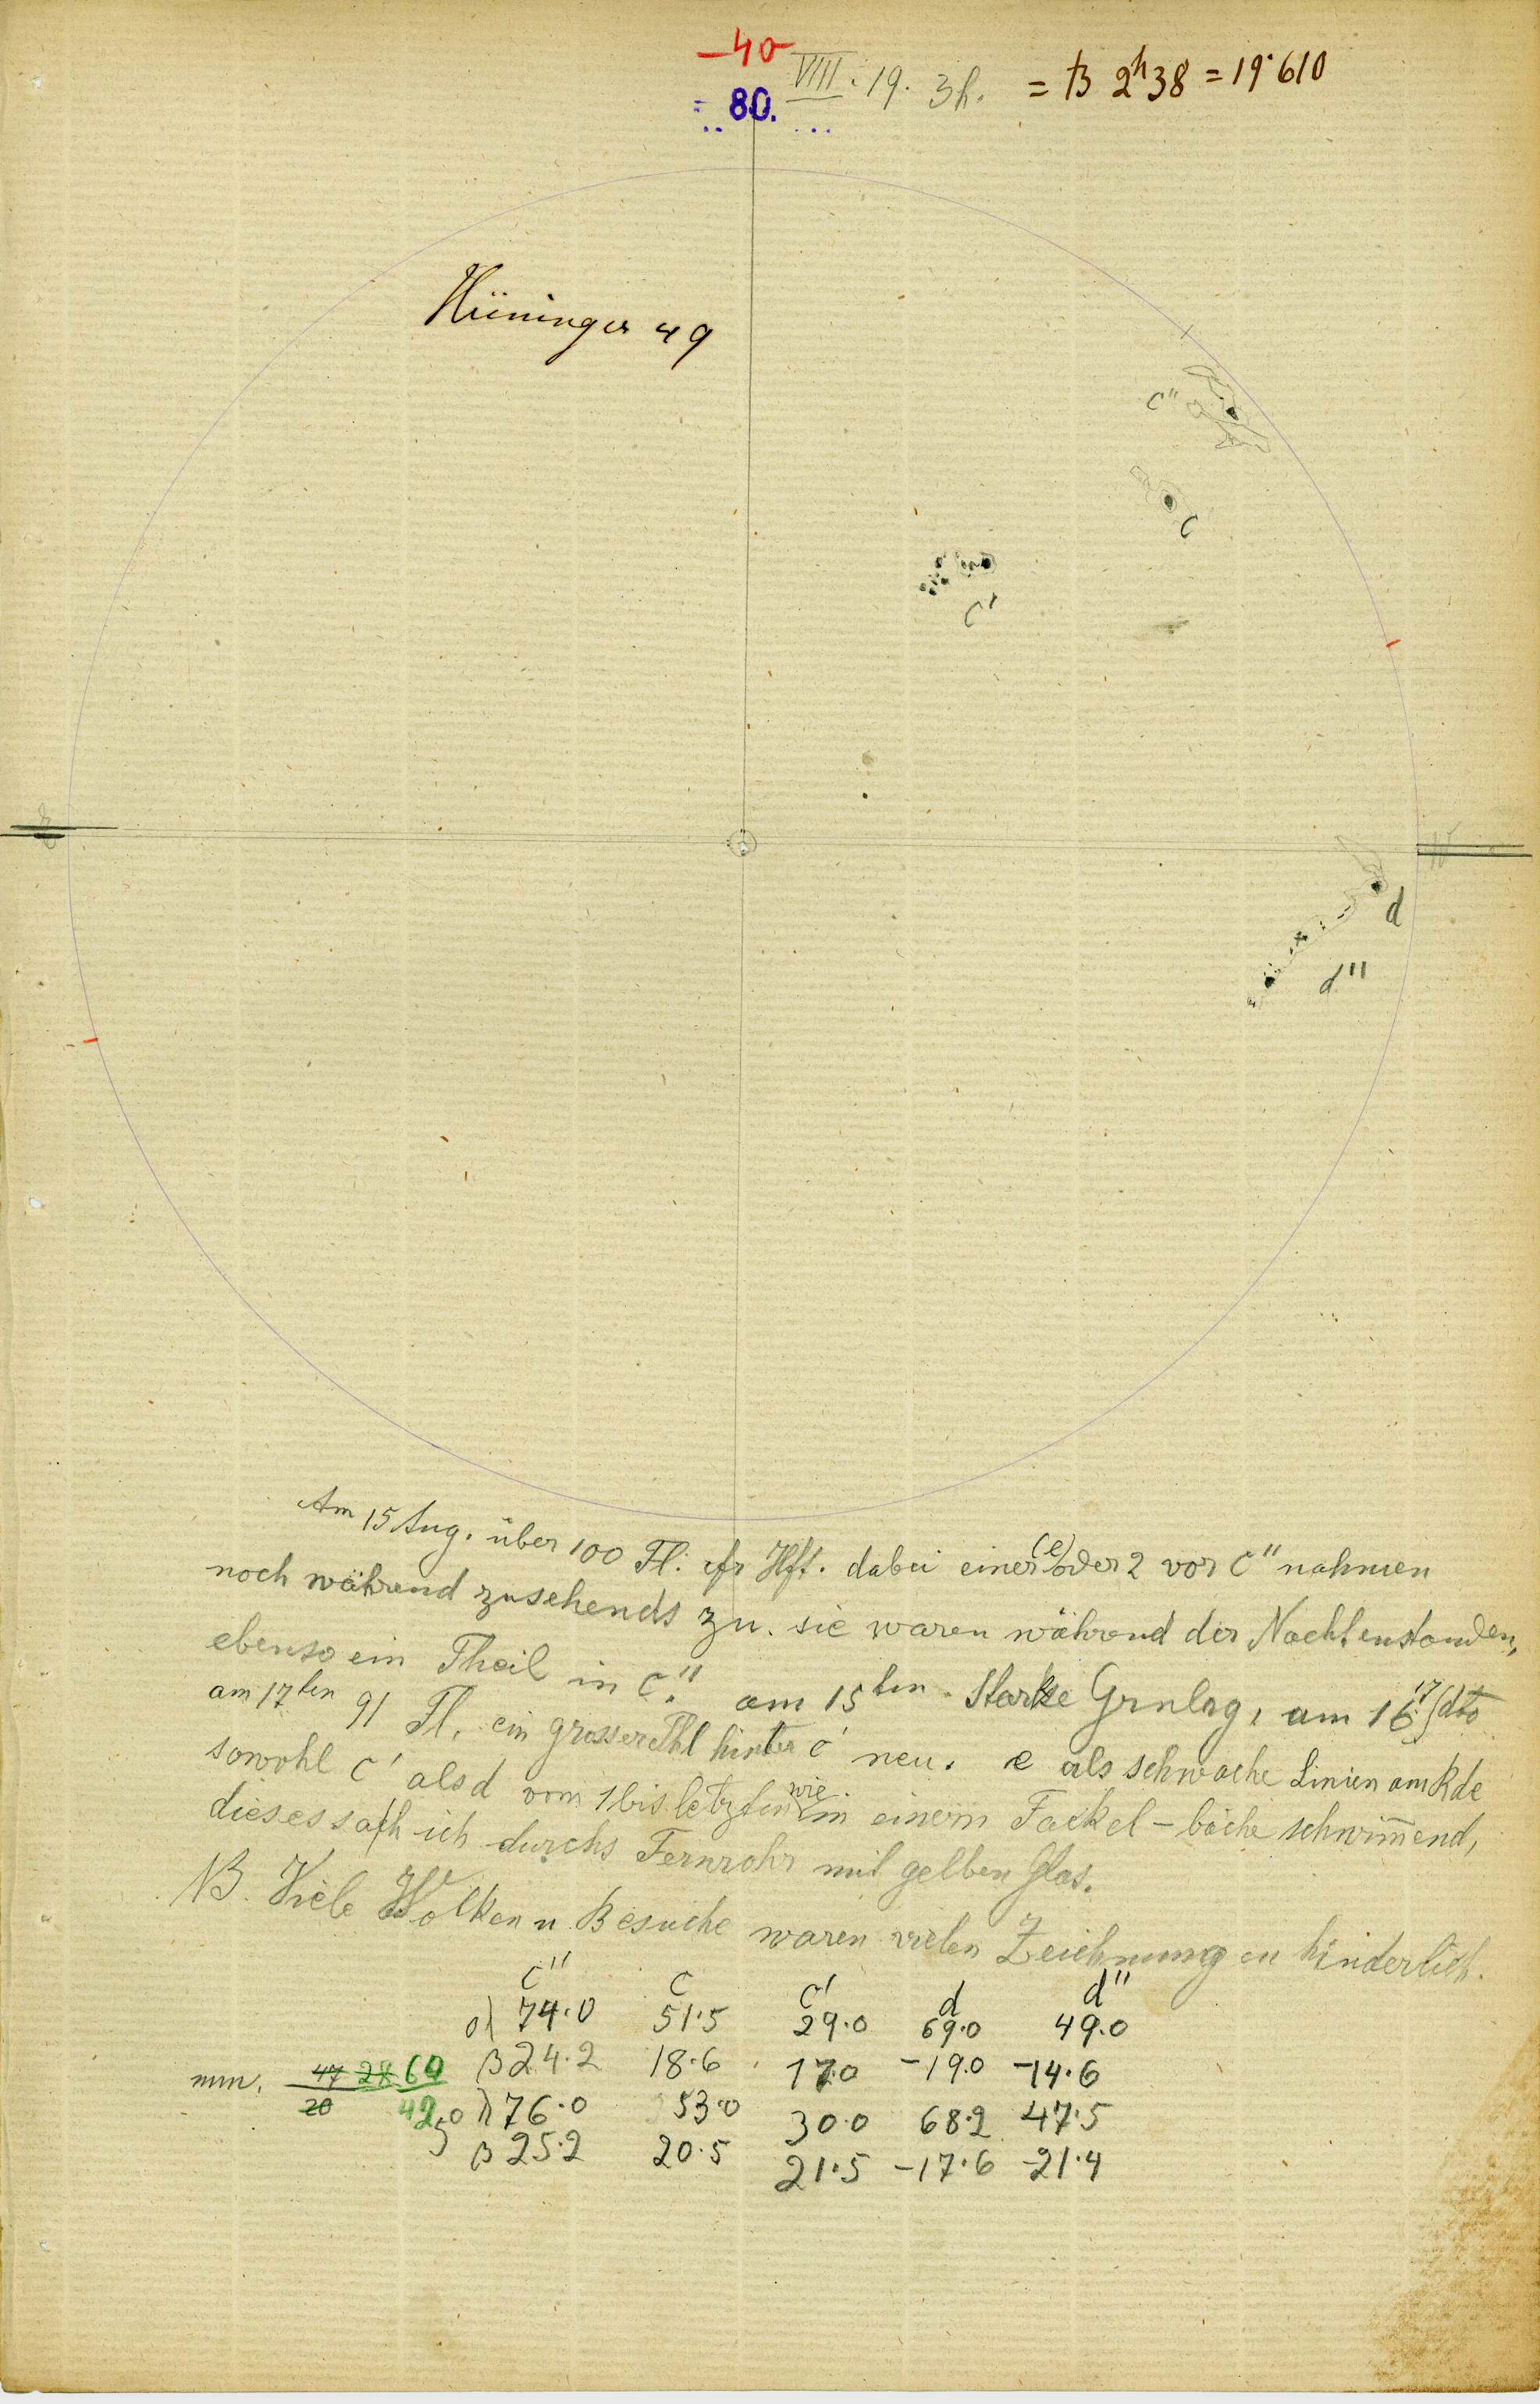 -40
80.
VIII. 19. 3h. = B 2h38 = 19.610
c"
c
c'
d
d"
Am 15 Aug. über 100 Fl. dabei einer (e) oder 2 vor c" nahmen
noch während zusehends zu. sie waren während der Nacht enstanden,
ebenso ein Theil in c". am 15ten Starke Grnlag, am 16 17 dto
am 17ten 91 Fl. ein grosser Thl hinter c' neu. e als schwache Linien am Rde
sowohl c' als d vom 1 bis letzten wie in einem Fackel-bäche schwim̄end,
dieses sah ich durchs Fernrohr mit gelben Glas.
NB. Viele Wolken u. Besuche waren vielen Zeichnungen hinderlich.
c" c c' d d"
α) 74.0 51.5 29.0 69.0 49.0
β 24.2 18.6 17.0 -19.0 -14.6
mm. 47 28 60
20 42.0
5
76.0 53.0 30.0 68.2 47.5
β 25.2 20.5 21.5 -17.6 -21.4